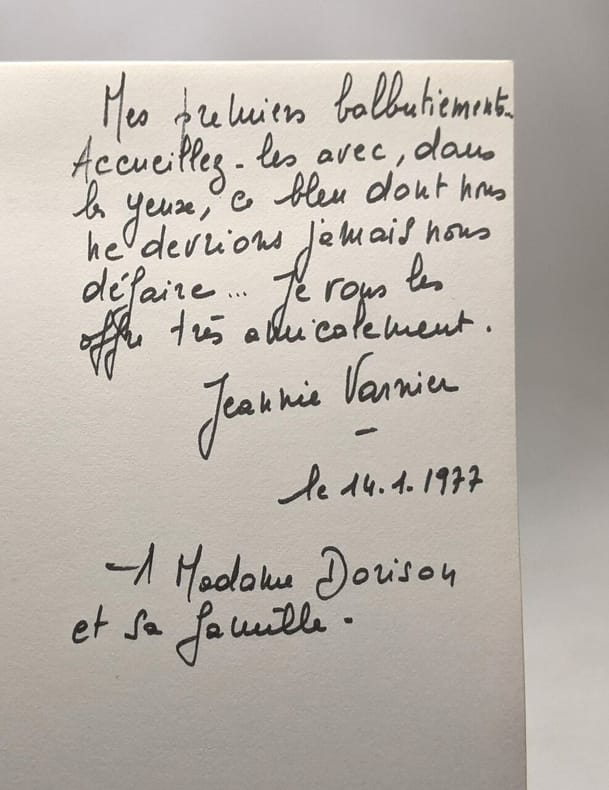 Mes premiers balbutiements..
Accueillez-les avec, dans
les yeux, ce bleu dont nous
ne devrions jamais nous
défaire... Je vous les
offre très amicalement.
Jeannie Varnier
le 14.1.1977
A Madame Dorison
et sa famille.